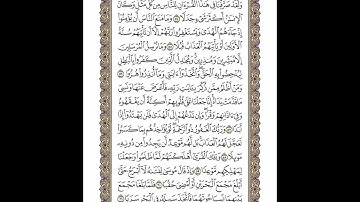 وَلَقَدْ صَرَّفْنَا فِي هَٰذَا ٱلْقُرْءَانِ لِلنَّاسِ مِن كُلِّ مَثَلٍ وَكَانَ
ٱلْإِنسَٰنُ أَكْثَرَ شَيْءٍ جَدَلًا ٥٤ وَمَا مَنَعَ ٱلنَّاسَ أَن يُؤْمِنُوٓا۟
إِذْ جَآءَهُمُ ٱلْهُدَىٰ وَيَسْتَغْفِرُوا۟ رَبَّهُمْ إِلَّآ أَن تَأْتِيَهُمْ سُنَّةُ
ٱلْأَوَّلِينَ أَوْ يَأْتِيَهُمُ ٱلْعَذَابُ قُبُلًا ٥٥ وَمَا نُرْسِلُ ٱلْمُرْسَلِينَ
إِلَّا مُبَشِّرِينَ وَمُنذِرِينَ وَيُجَٰدِلُ ٱلَّذِينَ كَفَرُوا۟ بِٱلْبَٰطِلِ
لِيُدْحِضُوا۟ بِهِ ٱلْحَقَّ وَٱتَّخَذُوٓا۟ ءَايَٰتِي وَمَآ أُنذِرُوا۟ هُزُوًا ٥٦
وَمَنْ أَظْلَمُ مِمَّن ذُكِّرَ بِـَٔايَٰتِ رَبِّهِۦ فَأَعْرَضَ عَنْهَا وَنَسِيَ
مَا قَدَّمَتْ يَدَاهُ إِنَّا جَعَلْنَا عَلَىٰ قُلُوبِهِمْ أَكِنَّةً أَن يَفْقَهُوهُ
وَفِيٓ ءَاذَانِهِمْ وَقْرًا وَإِن تَدْعُهُمْ إِلَى ٱلْهُدَىٰ فَلَن يَهْتَدُوٓا۟
إِذًا أَبَدًا ٥٧ وَرَبُّكَ ٱلْغَفُورُ ذُو ٱلرَّحْمَةِ لَوْ يُؤَاخِذُهُم بِمَا كَسَبُوا۟
لَعَجَّلَ لَهُمُ ٱلْعَذَابَ بَل لَّهُم مَّوْعِدٌ لَّن يَجِدُوا۟ مِن دُونِهِۦ
مَوْئِلًا ٥٨ وَتِلْكَ ٱلْقُرَىٰٓ أَهْلَكْنَٰهُمْ لَمَّا ظَلَمُوا۟ وَجَعَلْنَا
لِمَهْلِكِهِم مَّوْعِدًا ٥٩ وَإِذْ قَالَ مُوسَىٰ لِفَتَىٰهُ لَآ أَبْرَحُ حَتَّىٰٓ
أَبْلُغَ مَجْمَعَ ٱلْبَحْرَيْنِ أَوْ أَمْضِيَ حُقُبًا ٦٠ فَلَمَّا بَلَغَا مَجْمَعَ
بَيْنِهِمَا نَسِيَا حُوتَهُمَا فَٱتَّخَذَ سَبِيلَهُۥ فِي ٱلْبَحْرِ سَرَبًا ٦١